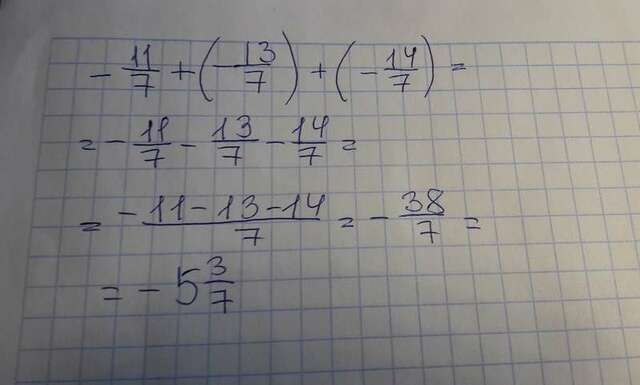 - 11/7 + (- 13/7) + (- 14/7) =
= - 11/7 - 13/7 - 14/7 =
= (-11-13-14)/7 = - 38/7 =
= - 5 3/7